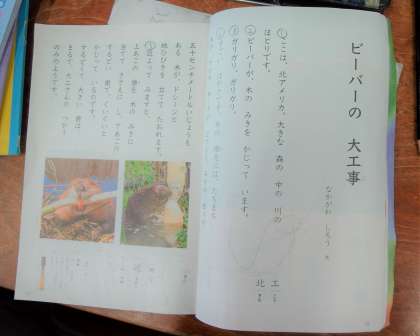 ビーバーの 大工事
なかがわ しろう
ここは、北アメリカ。大きな 森の 中の 川の
ほとりです。
ビーバーが、木の みきを かじって います。
ガリガリ、ガリガリ。
工
北
五十センチメートルいじょうも
ある 木が、ドシーンと
地ひびきを 立てて たおれます。
近よって みますと、
上あごの 歯を 木の みきに
当てて ささえにし、下あごの
するどい 歯で、ぐいぐいと
かじって いるのです。
するどくて 大きい 歯は、
まるで、大工さんの つかう
のみのようです。